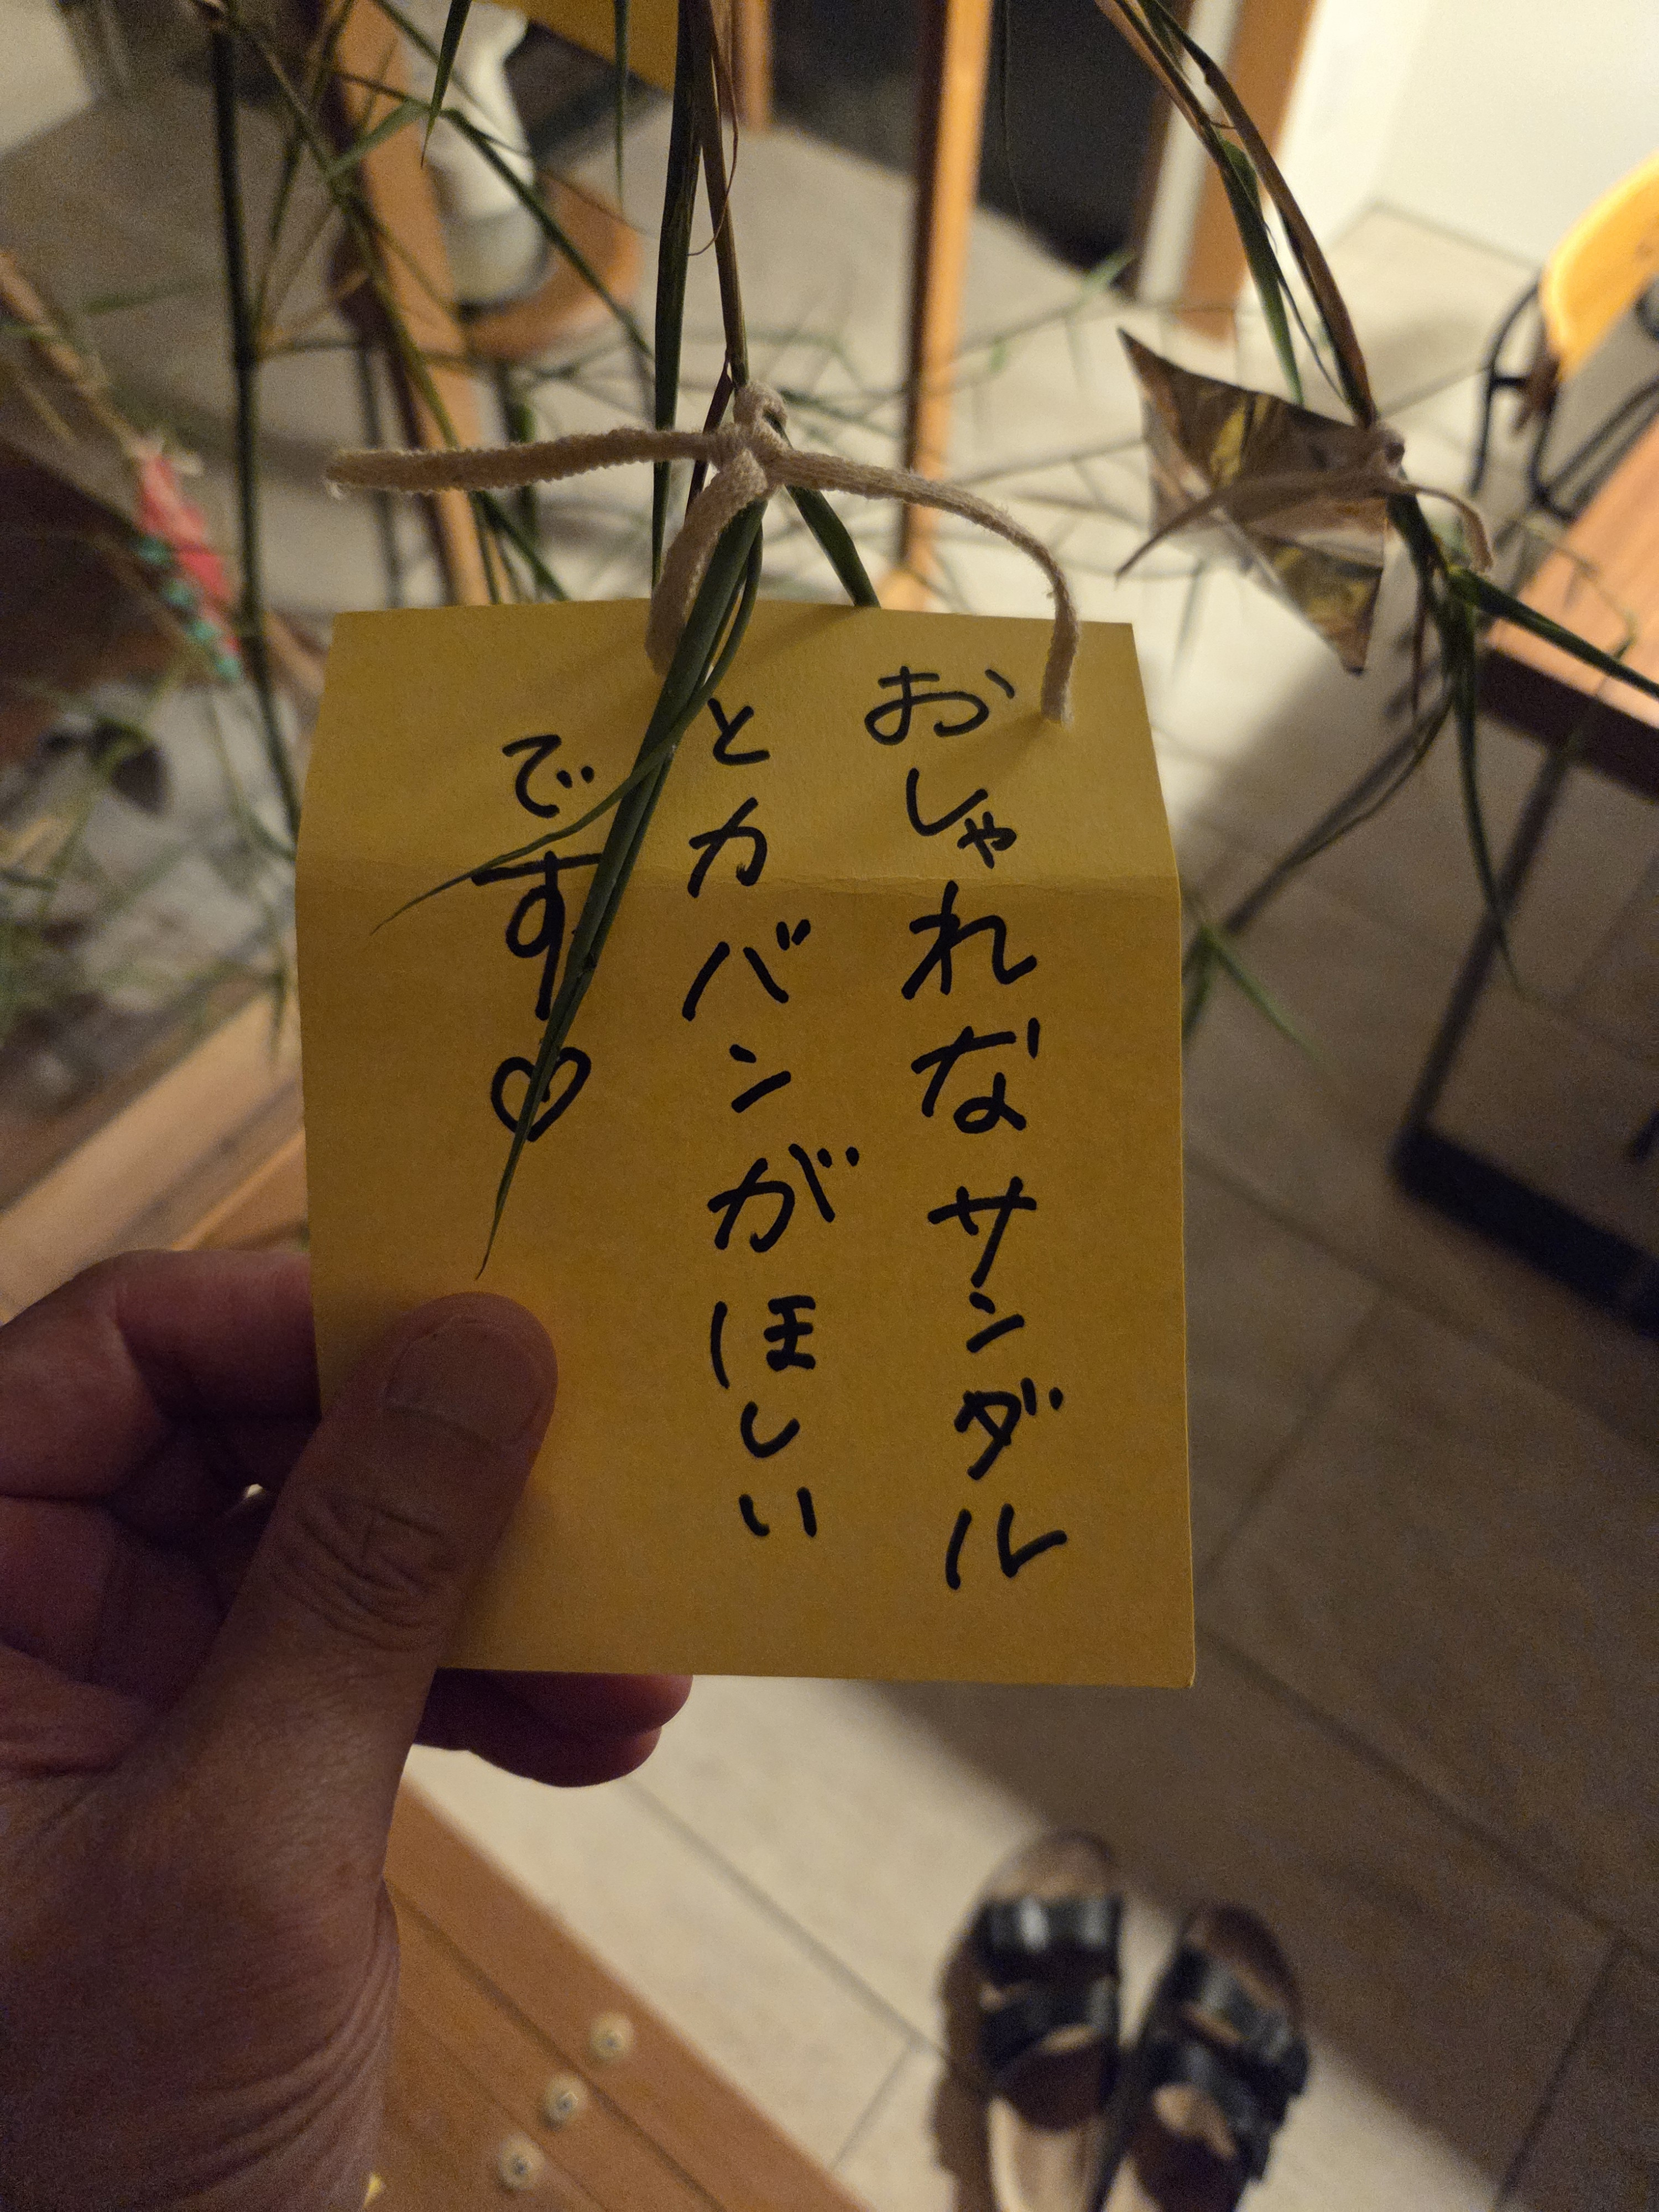 おしゃれなサンダル
とカバンがほしい
です♡